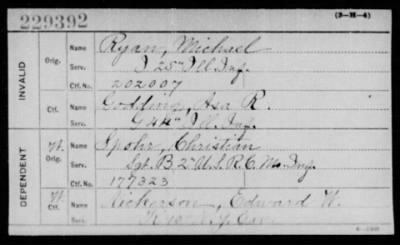 229392
(3-H-4)
INVALID
Orig.
Name Ryan, Michael
Serv. I 25" Ill Inf.
Ctf. No. 202007
Ctf.
Name Godding, Asa R.
Serv. G 44" Ill. Inf.
DEPENDENT
W.
Orig.
Name Spohr, Christian
Serv. Sgt. B. 2" U.S.R.C. Mo. Inf.
Ctf. No. 177323
W.
Ctf.
Name Nickerson, Edward W.
Serv. N.Y. Cav.